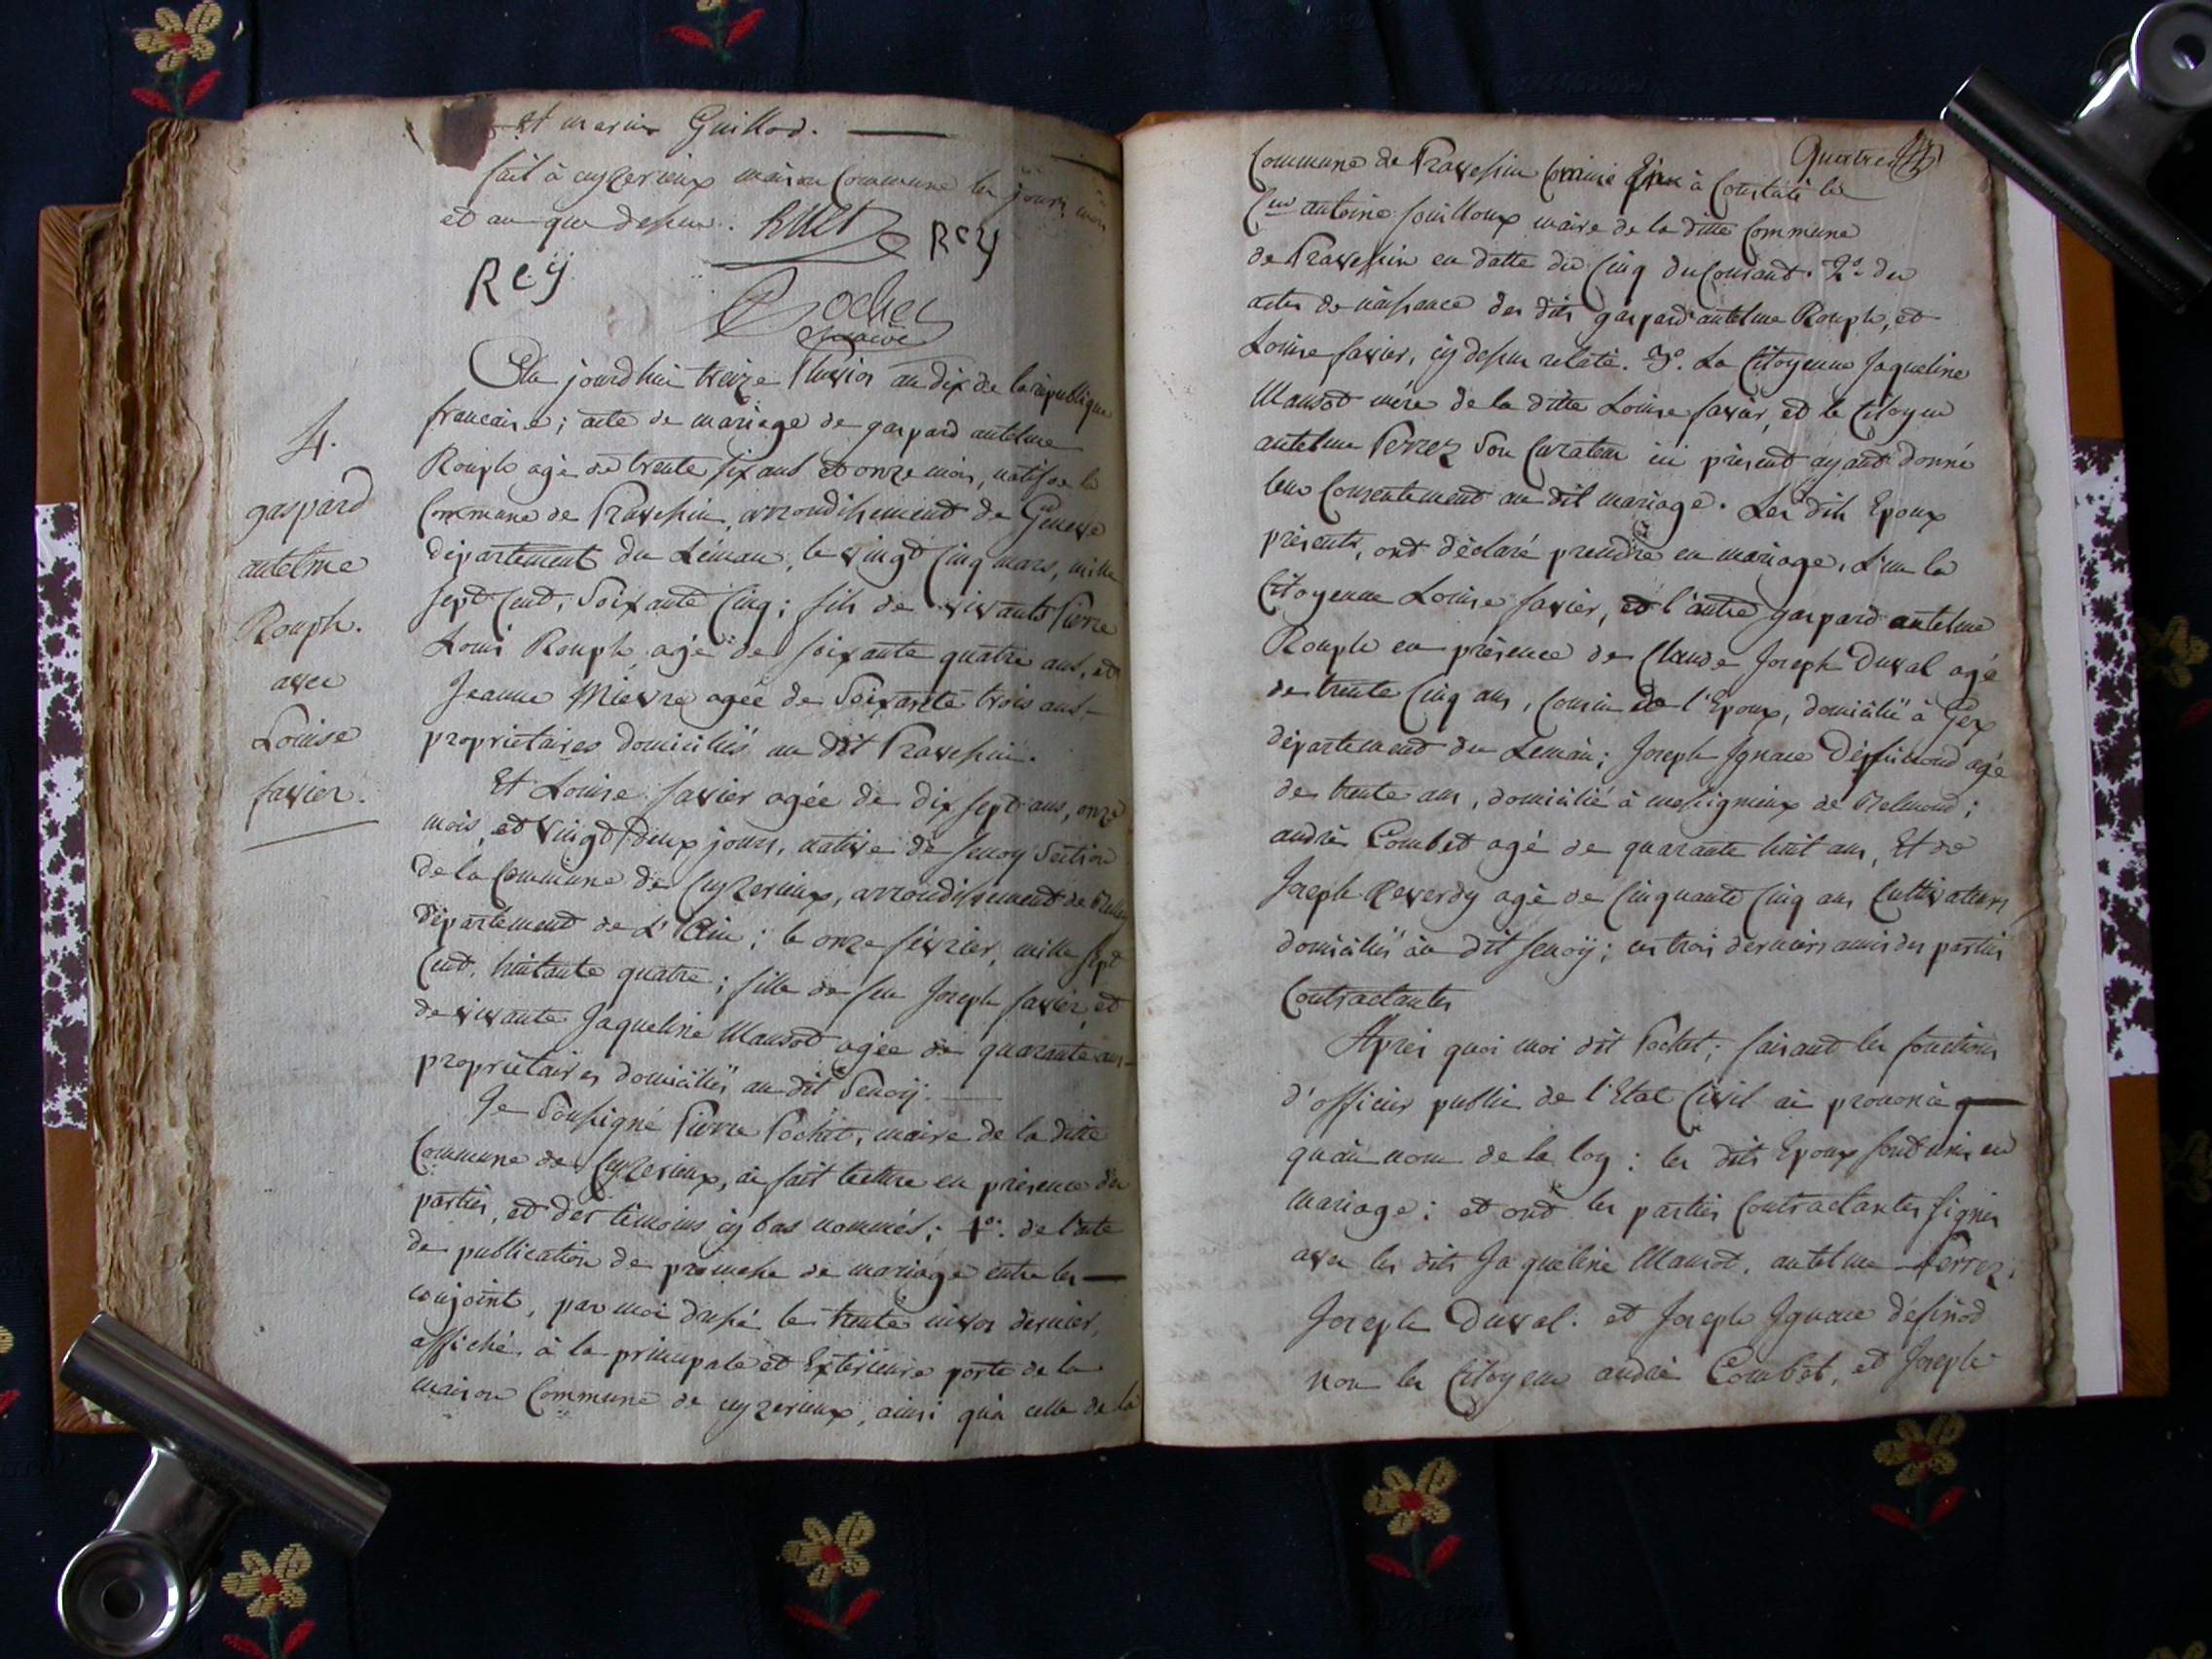 et marie Guillod.
fait à cuyzerieux maison Commune les jours, mois
et an que dessus. RUET Rey
Rey
Pochet
maire
4.
gaspard
antelme
Rouph.
avec
Louise
favier.
Du jourd'hui treize Pluviose an dix de la république
francaise; acte de mariage de gaspard antelme
Rouph agé de trente six ans et onze mois, natif de la
Commune de Pravessin, arrondissement de Geneve
département du Léman, le vingt cinq mars, mille
sept Cent, soixante Cinq; fils de vivants Pierre
Louis Rouph agé de soixante quatre ans, et
Jeanne Mievre agée de Soixante trois ans
propriétaires domiciliés au dit Pravessin.
Et Louise favier agée de dix sept ans, onze
mois, et vingt deux jours, native de Senoy Section
de la Commune de Cuyzerieux, arrondissement de
département de L'Ain; le onze février, mille sept
Cent, huitante quatre; fille de feu Joseph favier, et
de vivante Jaqueline Mansod agée de quarante ans
propriétaires domiciliés au dit Senoÿ.
Je Soussigné Pierre Pochet, maire de la ditte
Commune de Cuyzerieux, ai fait lecture en présence des
parties, et des témoins cy bas nommés; 1o. de l'acte
de publication de promesse de mariage entre les
conjoint, par moi dressé le trente nivos dernier,
affiché à la principale et Extérieure porte de la
maison Commune de cuyzerieux, ainsi qu'à celle de la
Quatre
Commune de Pravessin Comme à Constaté le
Cen antoine fouilloux maire de la ditte Commune
de Pravessin en datte du Cinq du Courant. 2o. des
actes de naissance des dits gaspard antelme Rouph, et
Louise favier, cy dessus relaté. 3o. La Citoyenne Jaqueline
Mansod mère de la ditte Louise favier, et le Citoyen
antelme Perrez Son Curateur ici présent ayant donné
leur Consentement au dit mariage. Les dits Epoux
présents, ont déclaré prendre en mariage, L'un la
Citoyenne Louise favier, et l'autre gaspard antelme
Rouph en présence de Claude Joseph Duval agé
de trente Cinq ans, Cousin de l'Epoux, domicilié à Gex
département du Leman; Joseph Ignace agé
de trente ans, domicilié à messignieux de Belmond;
andré Combet agé de quarante huit ans, Et de
Joseph Reverdy agé de Cinquante Cinq ans Cultivateurs,
domiciliés au dit Senoÿ; ces trois derniers amis des parties
Contractantes
Après quoi moi dit Pochet; faisant les fonctions
d'officier public de l'Etat Civil ai prononcé
qu'au nom de la loy: les dits Epoux sont unis en
mariage; et ont les parties Contractantes signés
avec les dits Jaqueline Mansod, antelme Perrez,
Joseph Duval. et Joseph Ignace défsinod
non les Citoyens andré Combet, et Joseph